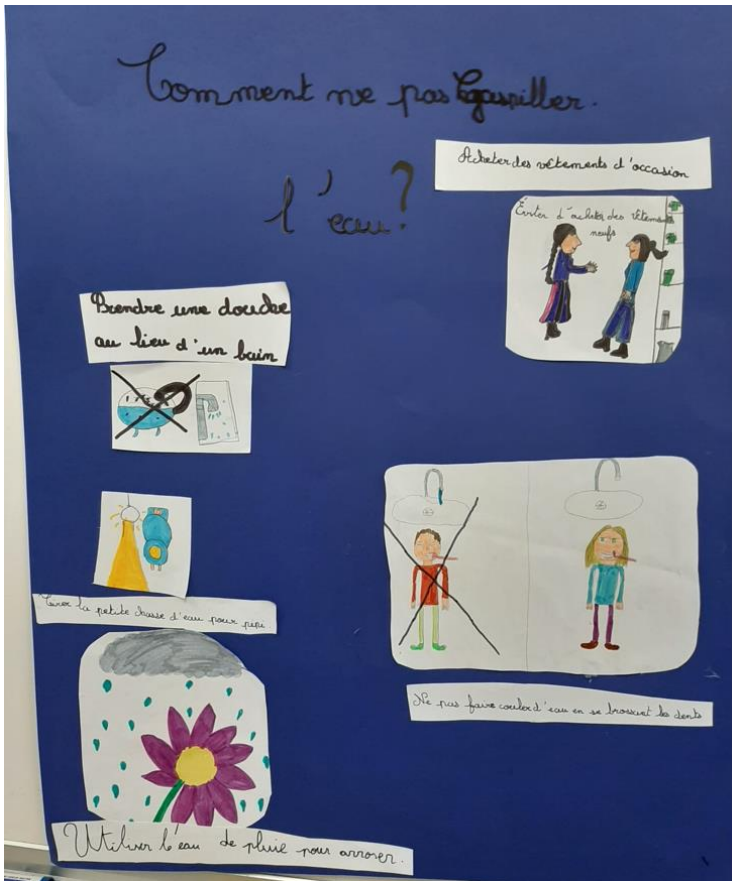 Comment ne pas gaspiller.
l'eau?
Acheter des vêtements d'occasion
Éviter d'acheter des vêtements
neufs
Prendre une douche
au lieu d'un bain
Tirer la petite chasse d'eau pour pipi.
Ne pas faire couler d'eau en se brossant les dents
Utiliser l'eau de pluie pour arroser.